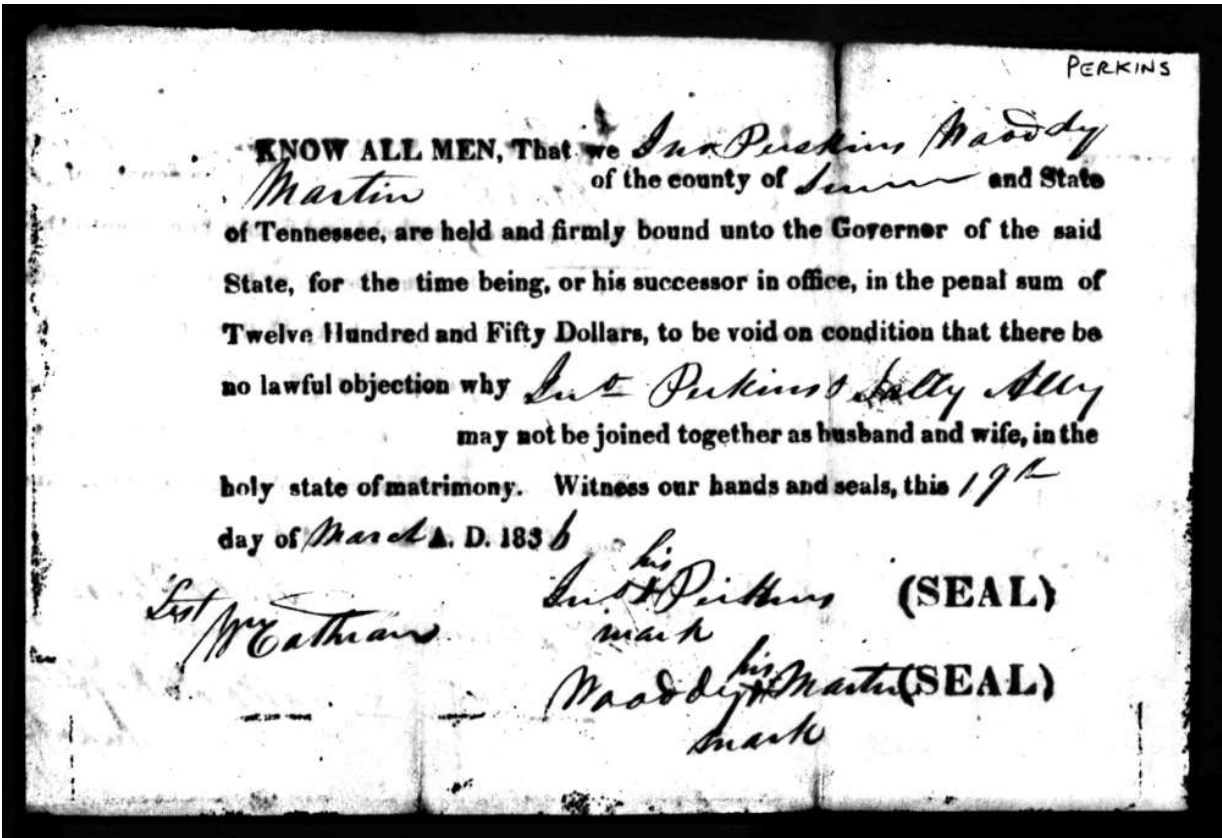 PERKINS
KNOW ALL MEN, That we Jno Perkins Wooddy
Martin of the county of Sumner and State
of Tennessee, are held and firmly bound unto the Governor of the said
State, for the time being, or his successor in office, in the penal sum of
Twelve Hundred and Fifty Dollars, to be void on condition that there be
no lawful objection why Jno Perkins & Sally Ally
may not be joined together as husband and wife, in the
holy state of matrimony. Witness our hands and seals, this 17th
day of March A. D. 1836
his
Test Jno X Perkins (SEAL)
mark
his
Wooddy X Martin (SEAL)
mark